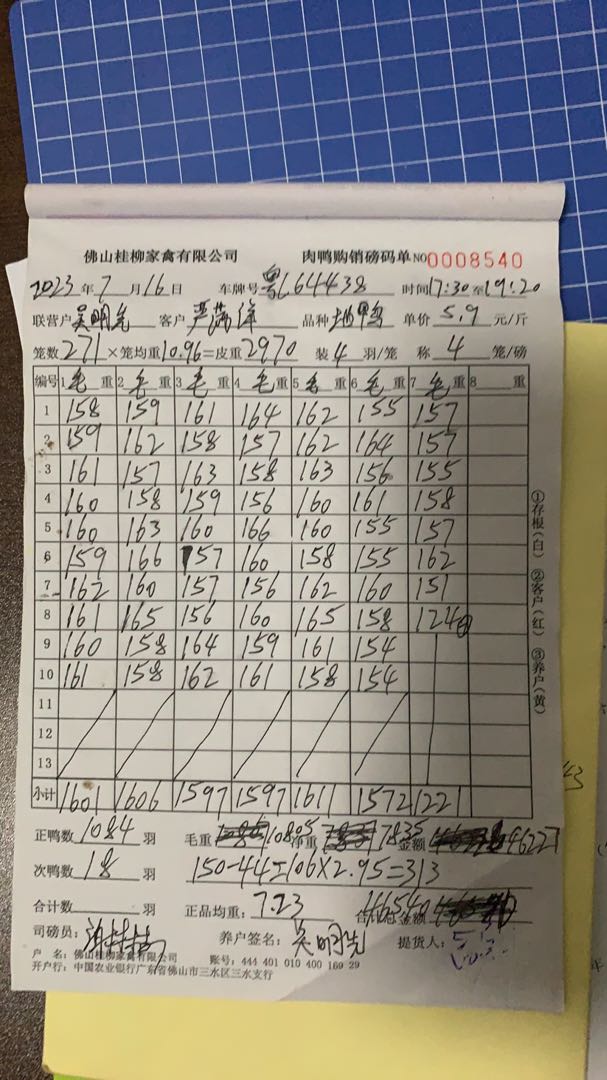 佛山桂柳家禽有限公司 肉鸭购销磅码单 NO 0008540
2023年7月16日 车牌号 粤L64438 时间17:30至19:20
联营户 吴明先 客户 品种 单价 5.9 元/斤
笼数271×笼均重10.96=皮重2970 装4羽/笼 称4笼/磅
编号 1毛重 2毛重 3毛重 4毛重 5毛重 6毛重 7毛重 8 重
1 158 159 161 164 162 155 157
2 159 162 158 157 162 164 157
3 161 157 163 158 163 156 155
4 160 158 159 156 160 161 158
5 160 163 160 166 160 155 157
6 159 166 157 160 158 155 162
7 162 160 157 156 162 160 151
8 161 165 156 160 165 158 124
9 160 158 164 159 161 154
10 161 158 162 161 158 154
11
12
13
小计 1601 1606 1597 1597 1611 1572 1221
正鸭数 1084 羽 毛重 10805 净重 7835 金额 46227
次鸭数 18 羽 150-44=106×2.95=313
合计数 羽 正品均重:7.23 合计总金额 46540
司磅员: 养户签名:吴明先 提货人:
户 名:佛山桂柳家禽有限公司 账号:444 401 010 400 169 29
开户行:中国农业银行广东省佛山市三水区三水支行
①存根(白) ②客户(红) ③养户(黄)